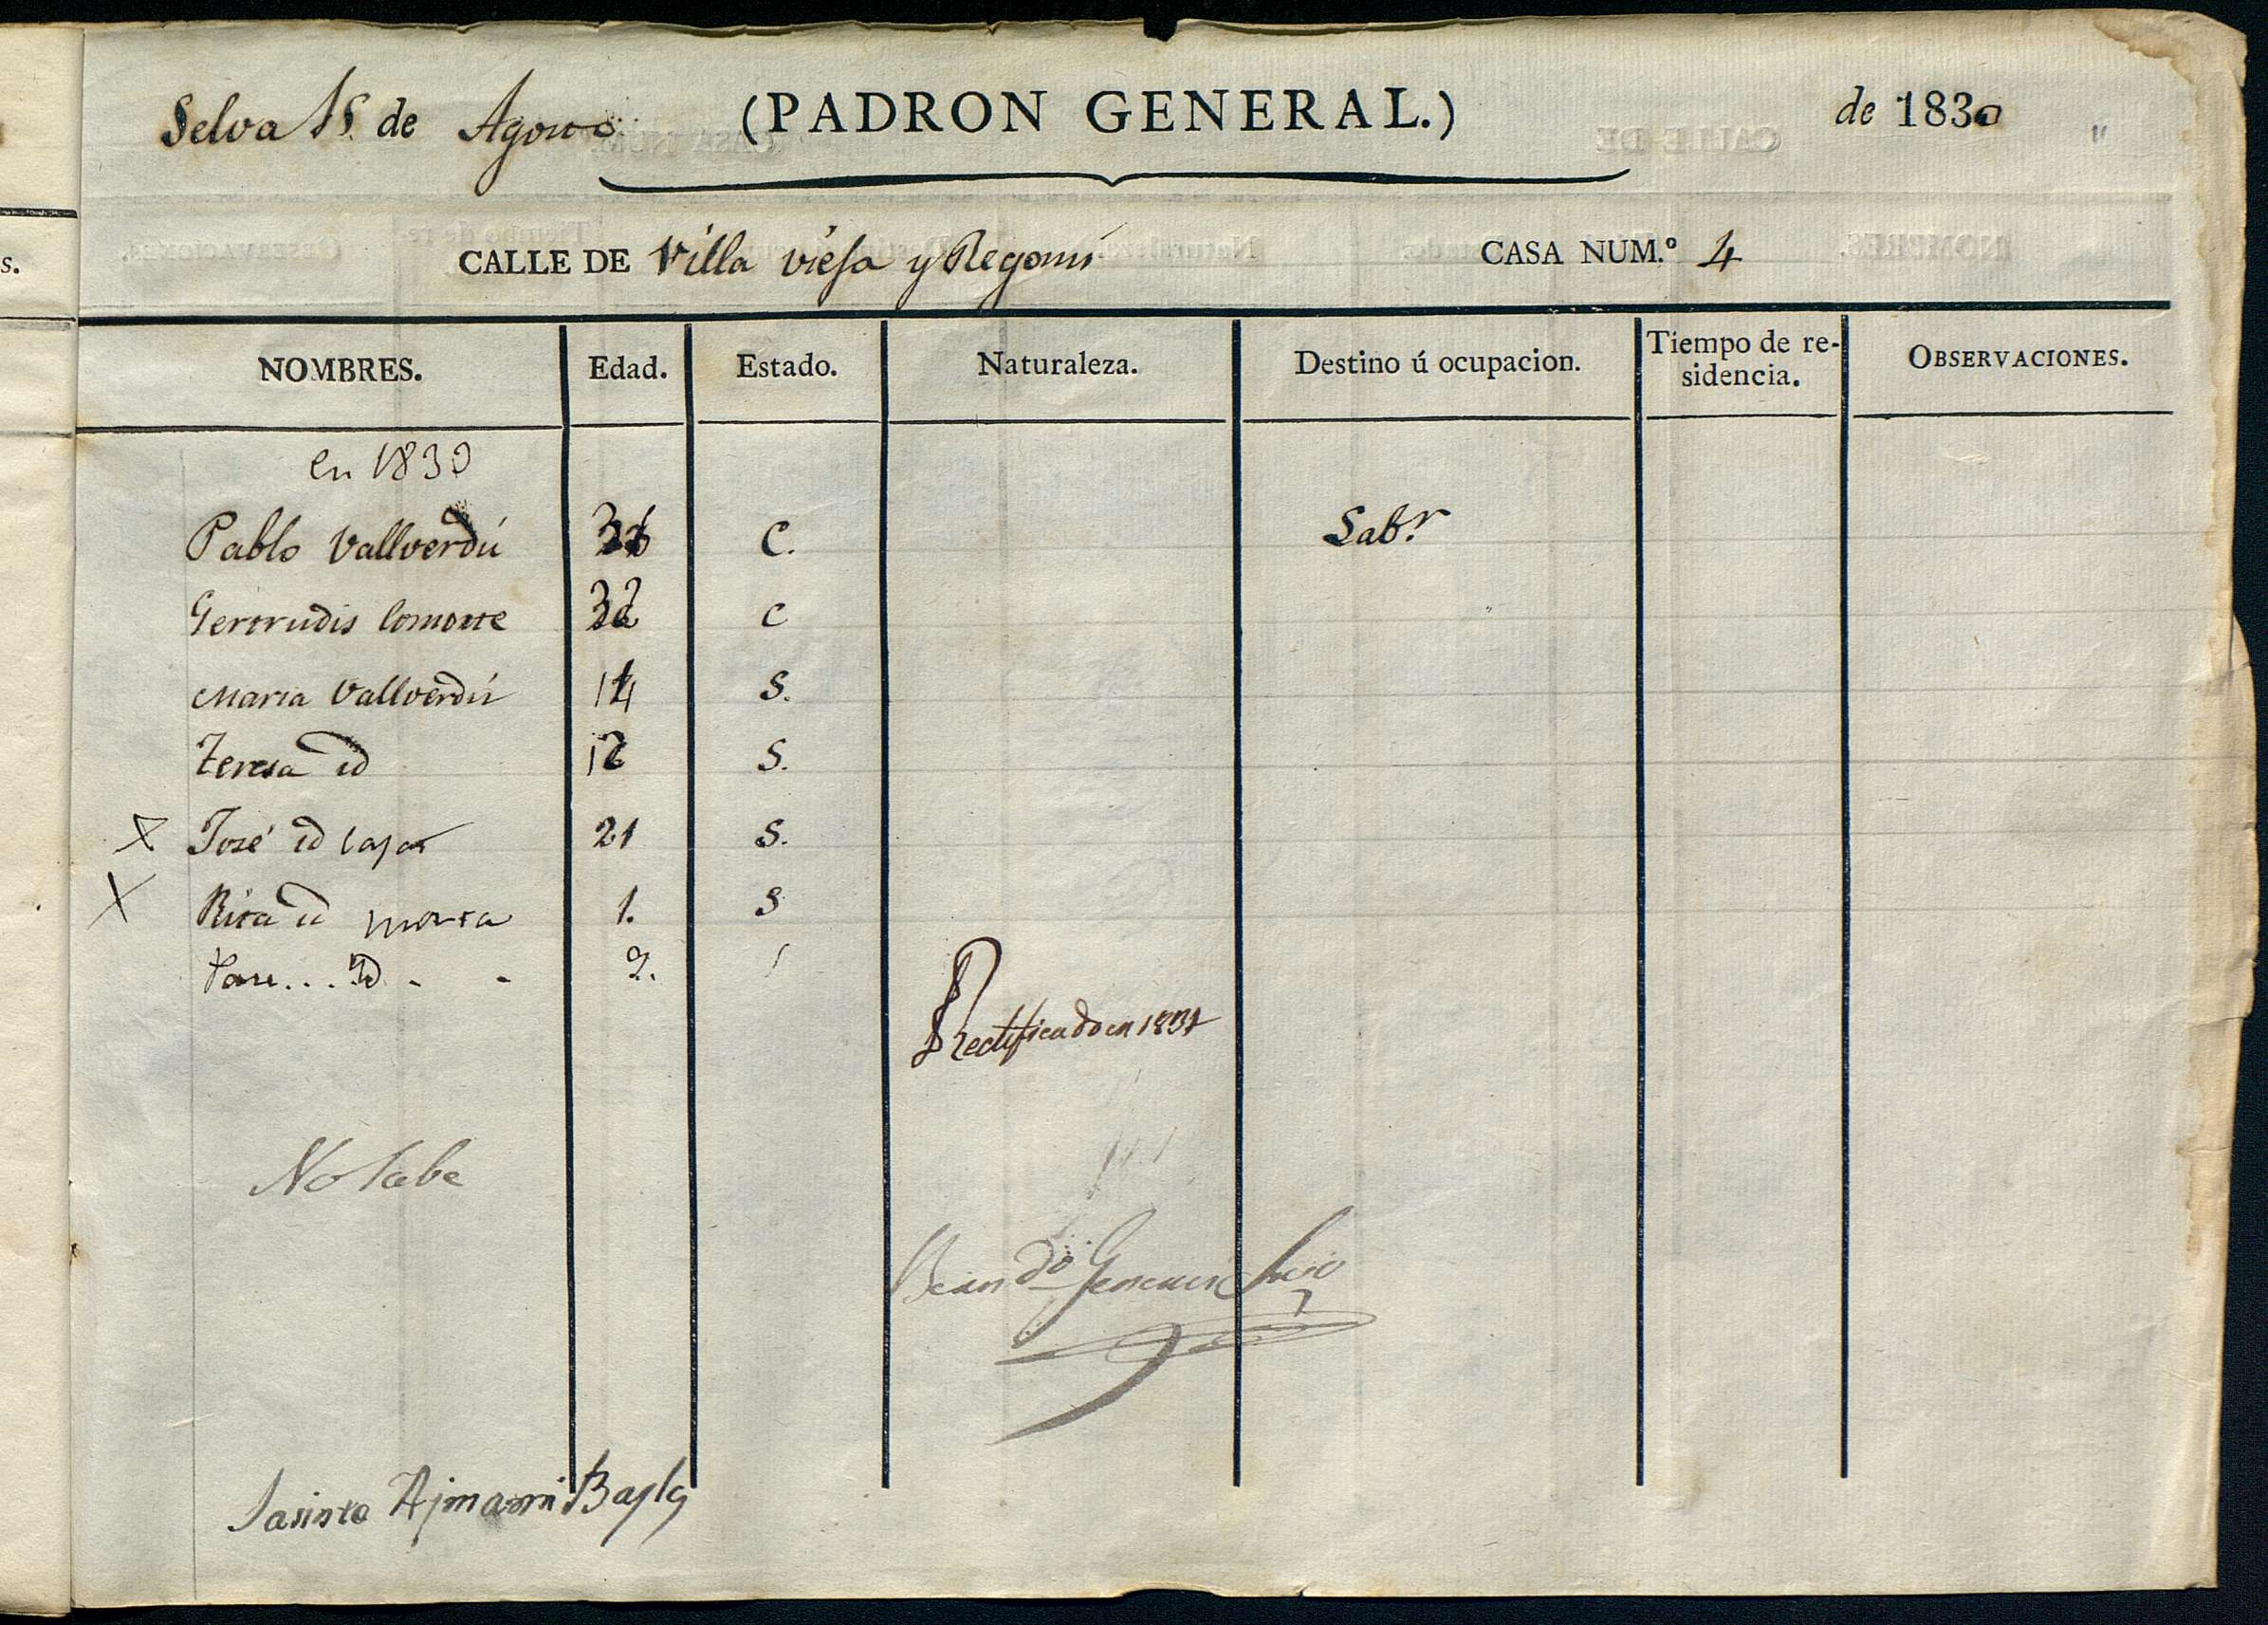 Selva 15 de Agosto (PADRON GENERAL.) de 1830
CALLE DE Villa viesa y Regomi CASA NUM.º 4
NOMBRES. Edad. Estado. Naturaleza. Destino ú ocupacion. Tiempo de re-sidencia. OBSERVACIONES.
en 1830
Pablo Vallverdú C. Labr.
Gertrudis C
Maria Vallverdú 14 S.
Teresa id 12 S.
X José id 21 S.
X Rita id morta 1. S
id 2.
Rectificado en 1831
No sabe